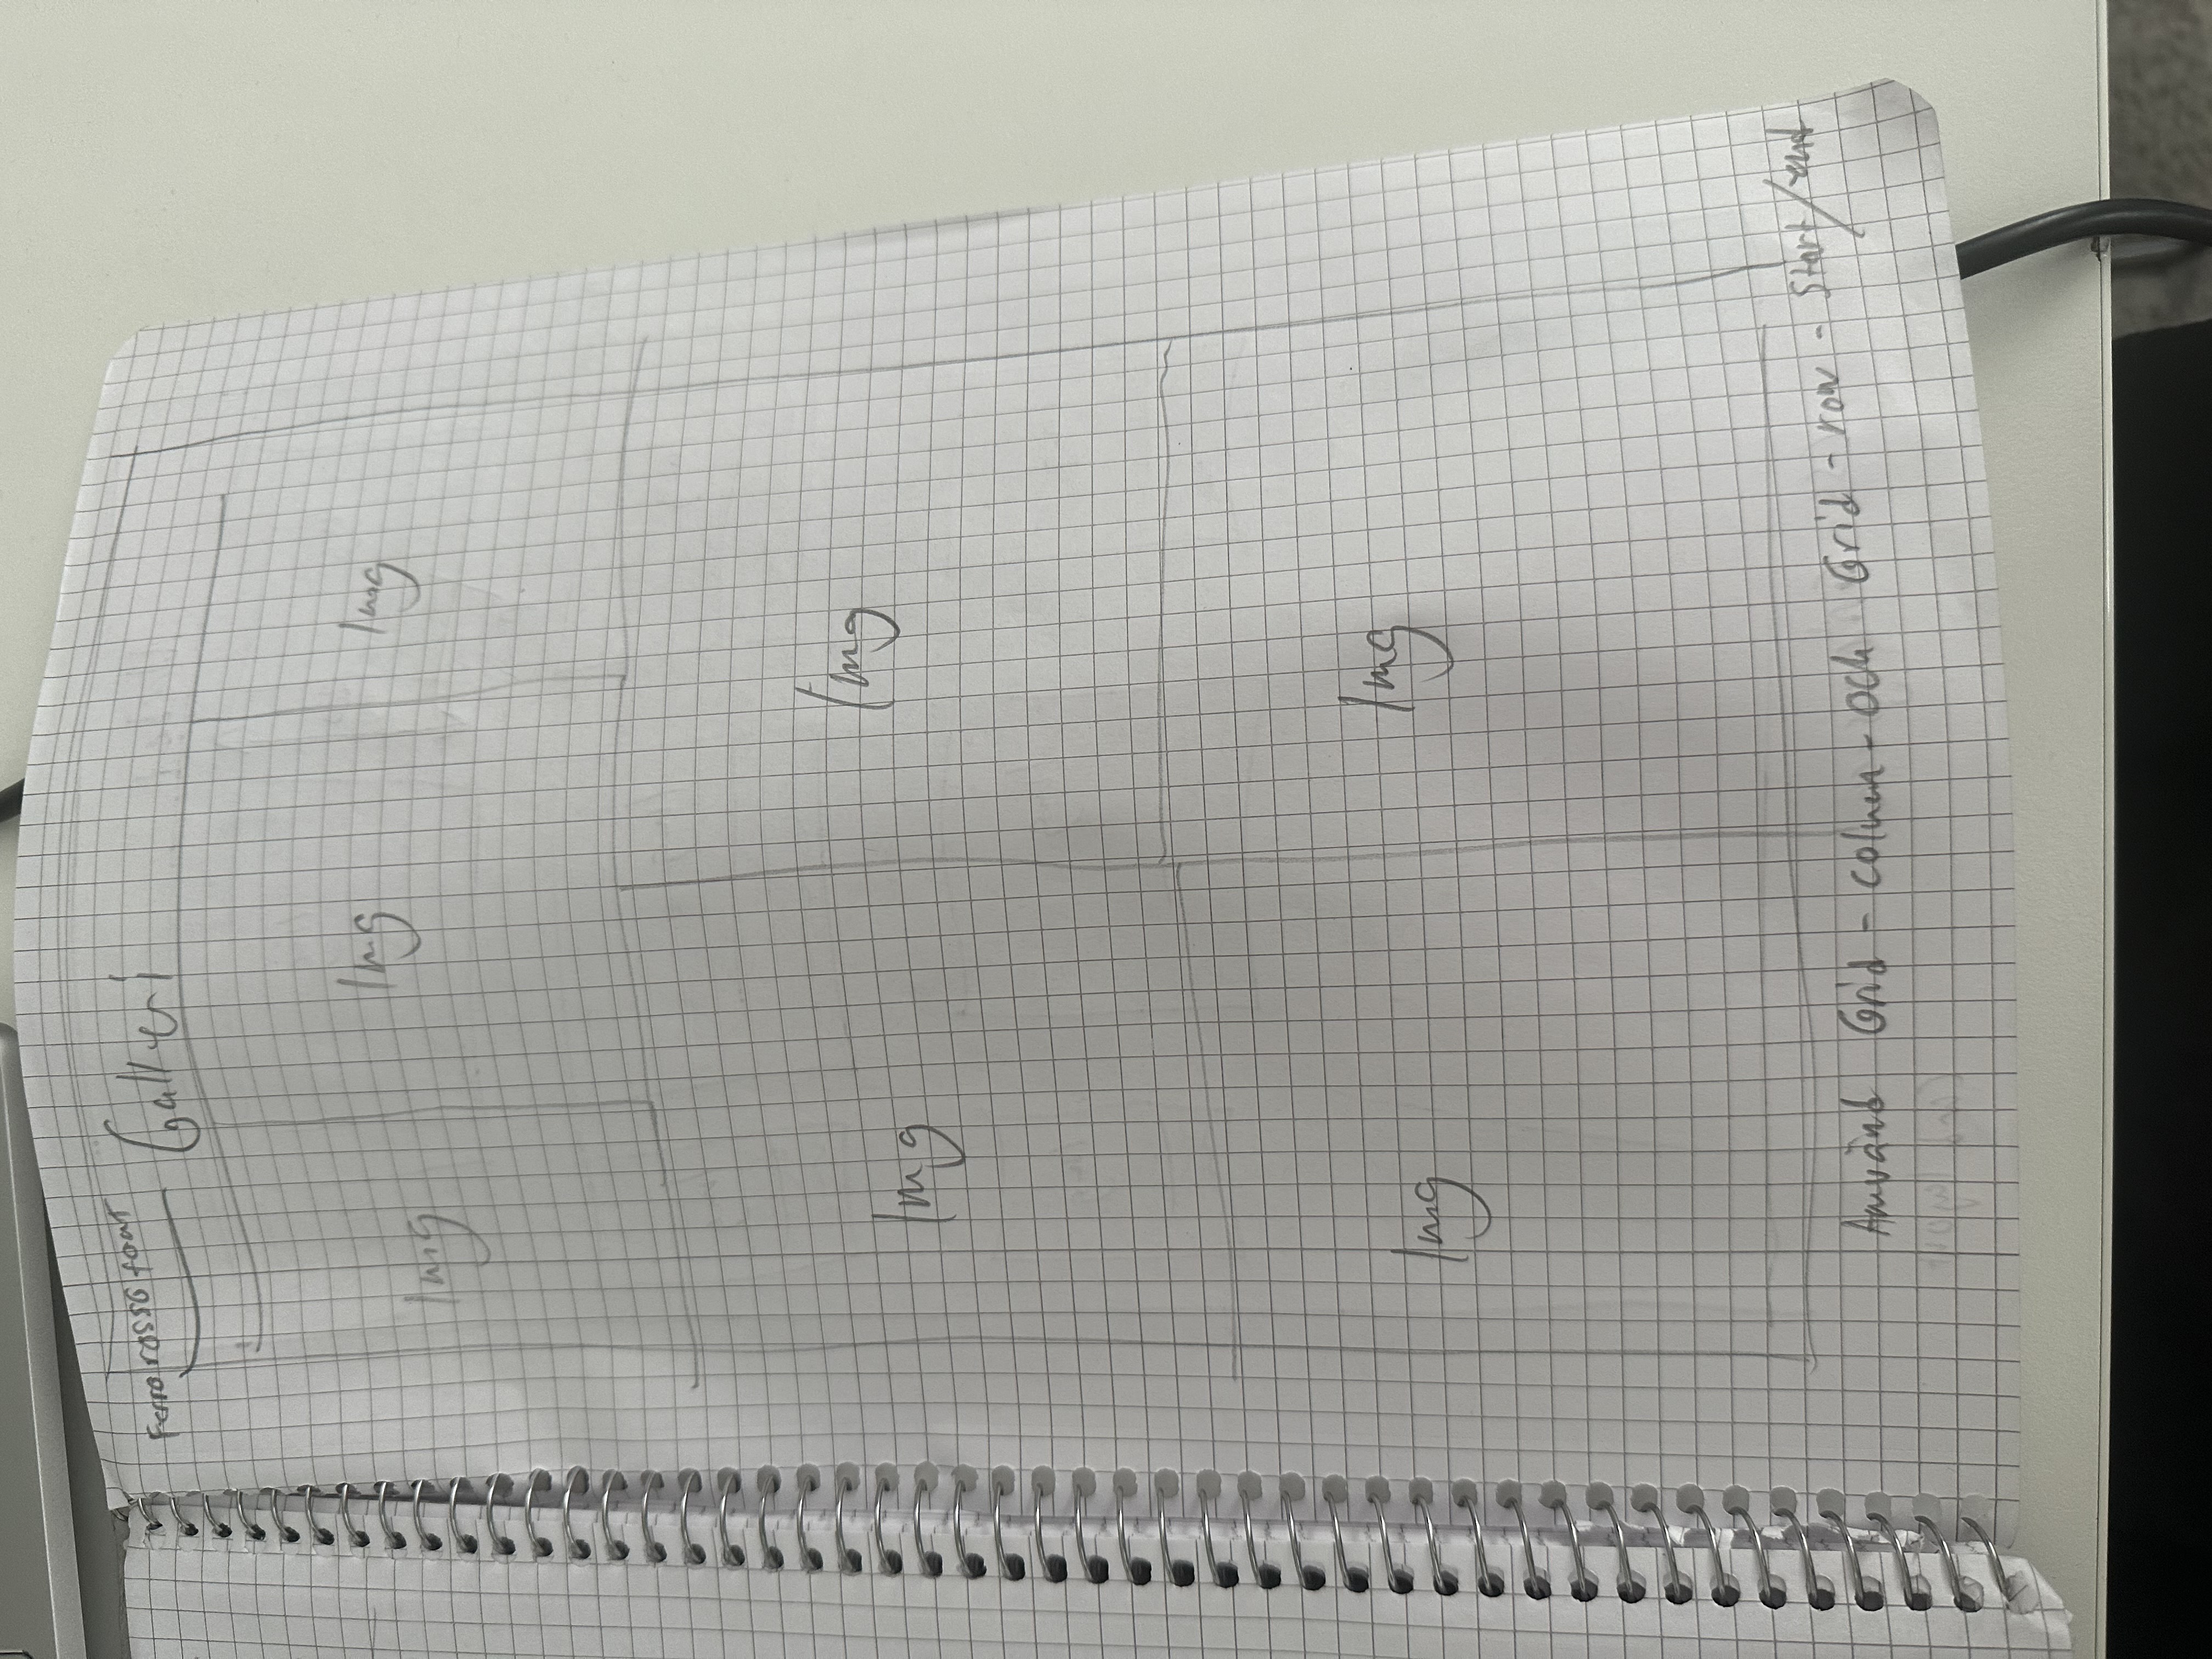 Ferro rosso font
Galleri
Img Img Img
Img Img
Img Img
Använd Grid - column - och Grid - row - Start/end